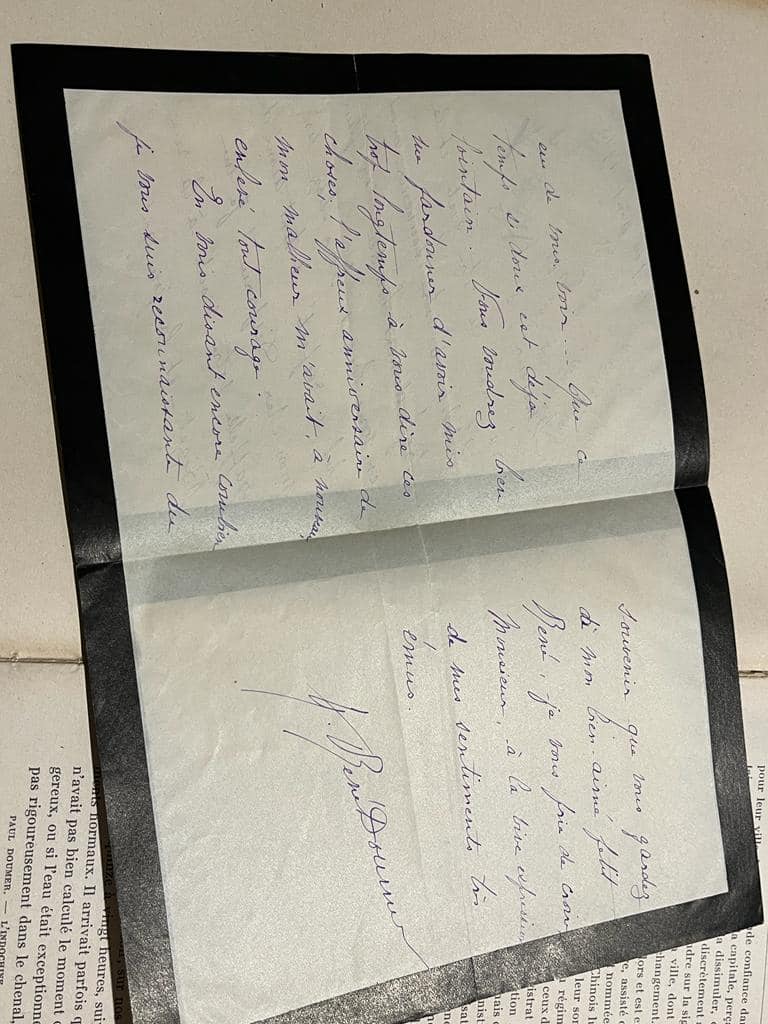 eu de vous voir... Que ce
temps si doux est déjà
lointain... Vous voudrez bien
me pardonner d'avoir mis
trop longtemps à vous dire ces
choses, l'affreux anniversaire de
mon malheur m'avait, à nouveau
enlevé tout courage.
En vous disant encore combien
je vous suis reconnaissante du
souvenir que vous gardez
de mon bien-aimé petit
René, je vous prie de croire
Monsieur, à la bien expression
de mes sentiments très
émus.
René Doumer
pour leur
de confiance da
a capitale, perç
a dissimuler,
discrètement
dre sur la si
ville, dont
hangement
ors et est e
e, assisté
nommée
Chinois l
leur son
régime
ceux
istrat
tion
nist
sat
vingt heures, sui
normaux. Il arrivait parfois q
n'avait pas bien calculé le moment
gereux, ou si l'eau était exceptionne
pas rigoureusement dans le chenal,
PAUL DOUMER. — L'INDOCHINE